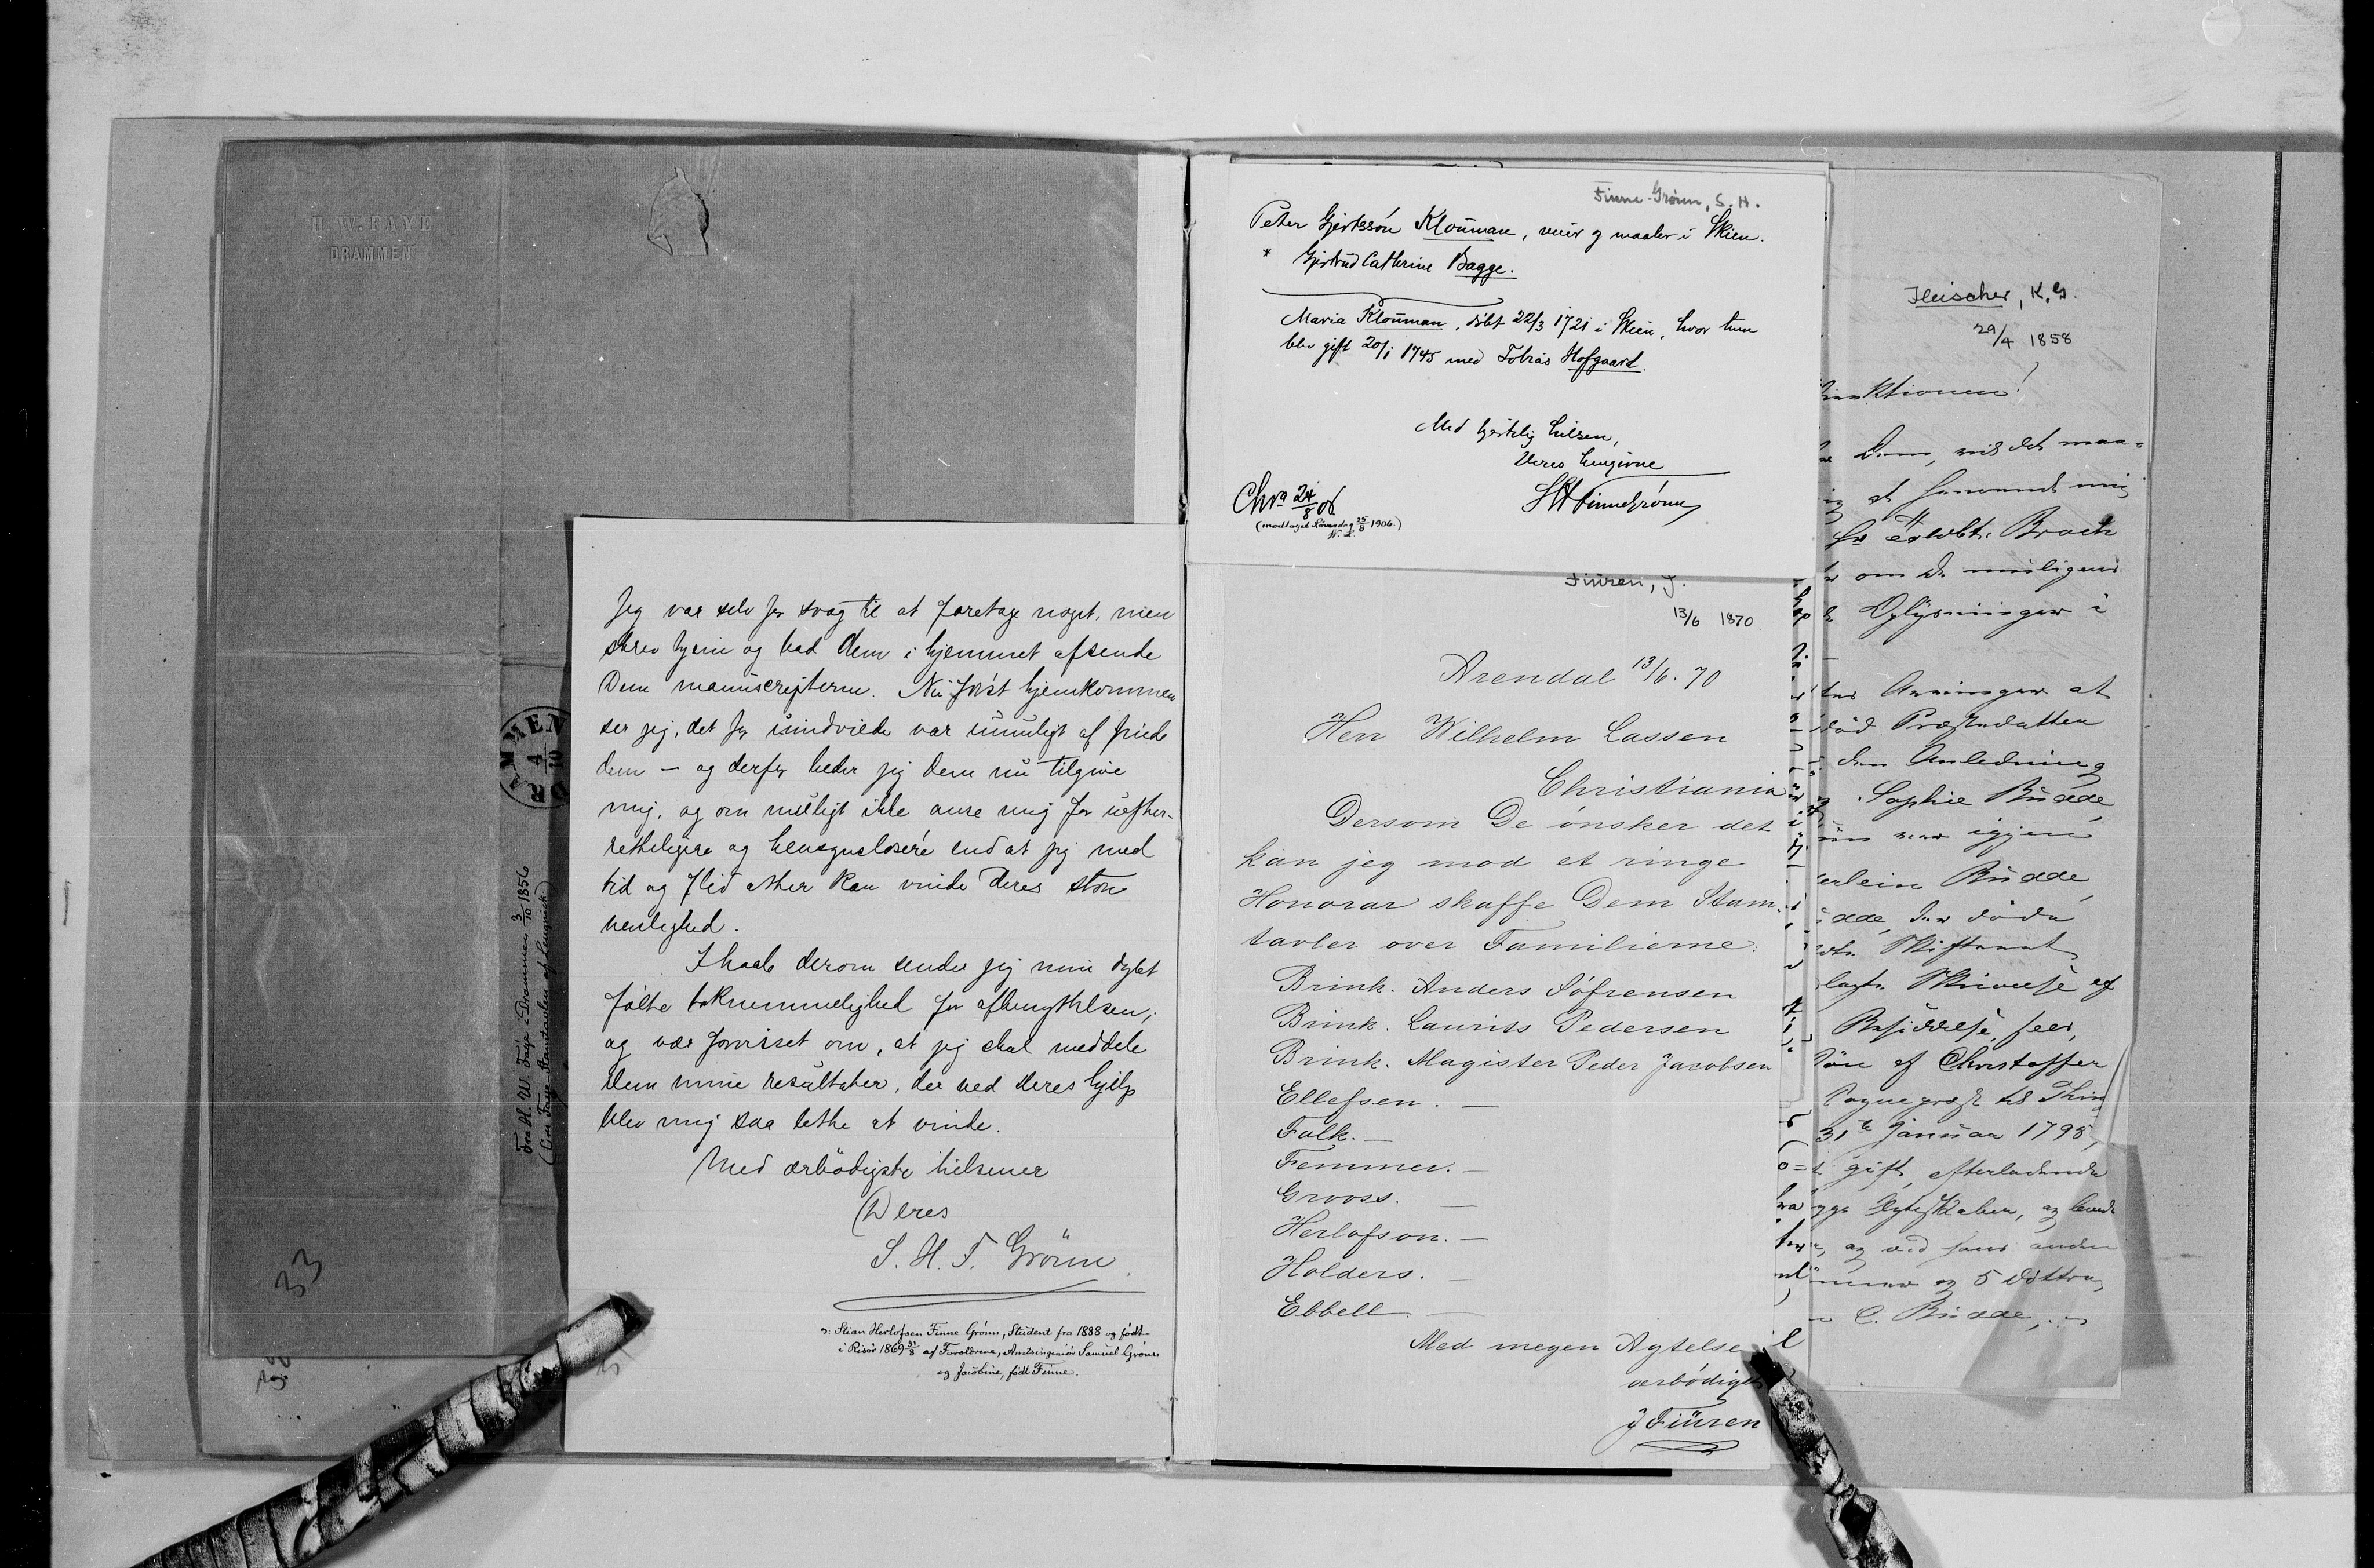 H. W. FAYE
DRAMMEN
DRAMMEN
4/10
Fra H. W. Faye i Drammen 3/10 1856
(Om Faye-Stamtavlen af Lengnick)
33
Jeg var selv for svag til at foretage noget, men
skrev hjem og bad dem i hjemmet afsende
Dem manuscripterne. Nu først hjemkommen
ser jeg, det for uindviede var umuligt at finde
dem — og derfor beder jeg Dem nu tilgive
mig, og om muligt ikke anse mig for uefter-
retteligere og hensynsløsere end at jeg med
tid og flid atter kan vinde Deres store
venlighed.
I haab derom sender jeg min dybt
følte taknemmelighed for afbenyttelsen,
og vær forvisset om, at jeg skal meddele
Dem mine resultater, der ved Deres hjælp
blev mig saa lette at vinde.
Med ærbødigste hilsener
Deres
S. H. F. Grönn.
ɔ: Stian Herlofsen Finne Grønn, Student fra 1888 og født
i Risør 1869 31/8 af Forældrene, Amtsingeniør Samuel Grønn
og Jacobine, født Finne.
Finne-Grønn, S. H.
Peter Gjertssøn Klouman, veier og maaler i Skien.
* Gjertrud Cathrine Bagge.
Maria Klouman, døbt 22/3 1721 i Skien, hvor hun
blev gift 20/1 1745 med Tobias Hofgaard.
Med hjertelig hilsen,
Deres hengivne
SHFinneGrønn
Chra 24/8 06
(modtaget Lørverdag 25/8 1906.)
W. L.
Fiüren, J.
13/6 1870
Arendal 13/6. 70
Herr Wilhelm Lassen
Christiania
Dersom De ønsker det
kan jeg mod et ringe
Honorar skaffe Dem Stam-
tavler over Familierne:
Brink. Anders Söfrensen
Brink. Laurits Pedersen
Brink. Magister Peder Jacobsen
Ellefsen. —
Falk. —
Femmer. —
Grooss. —
Herlofson. —
Holders. —
Ebbell. —
Med megen Agtelse
ærbødigst
J Fiüren
Fleischer, K. G.
29/4 1858
Dem, vil det maa-
Brock
om De muligens
Oplysninger i
at
død
den Anledning
Sophie Budde
igjen
Budde
dde, der døde
Skiftet
af
Besiddelse, sees,
Søn af Christoffer
Sognepræst til Thin
31te Januar 1798,
gift, efterladende
og
og ved hans anden
og 5 Døttre,
C. Budde,